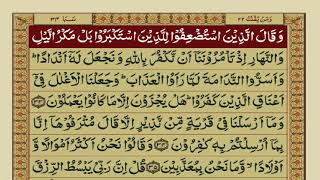 وَمَنْ يَّقْنُتْ ٢٢ سَبَا ٣٤
وَقَالَ الَّذِيْنَ اسْتُضْعِفُوْا لِلَّذِيْنَ اسْتَكْبَرُوْا بَلْ مَكْرُ الَّيْلِ
وَالنَّهَارِ اِذْ تَاْمُرُوْنَنَاۤ اَنْ نَّكْفُرَ بِاللّٰهِ وَنَجْعَلَ لَهٗۤ اَنْدَادًا ؕ
وَاَسَرُّوا النَّدَامَةَ لَمَّا رَاَوُا الْعَذَابَ ؕ وَجَعَلْنَا الْاَغْلٰلَ فِيْۤ
اَعْنَاقِ الَّذِيْنَ كَفَرُوْا ؕ هَلْ يُجْزَوْنَ اِلَّا مَا كَانُوْا يَعْمَلُوْنَ ﴿۳۳﴾
وَمَاۤ اَرْسَلْنَا فِيْ قَرْيَةٍ مِّنْ نَّذِيْرٍ اِلَّا قَالَ مُتْرَفُوْهَاۤ ۙ اِنَّا
بِمَاۤ اُرْسِلْتُمْ بِهٖ كٰفِرُوْنَ ﴿۳۴﴾ وَقَالُوْا نَحْنُ اَكْثَرُ اَمْوَالًا وَّ
اَوْلَادًا ۙ وَّمَا نَحْنُ بِمُعَذَّبِيْنَ ﴿۳۵﴾ قُلْ اِنَّ رَبِّيْ يَبْسُطُ الرِّزْقَ